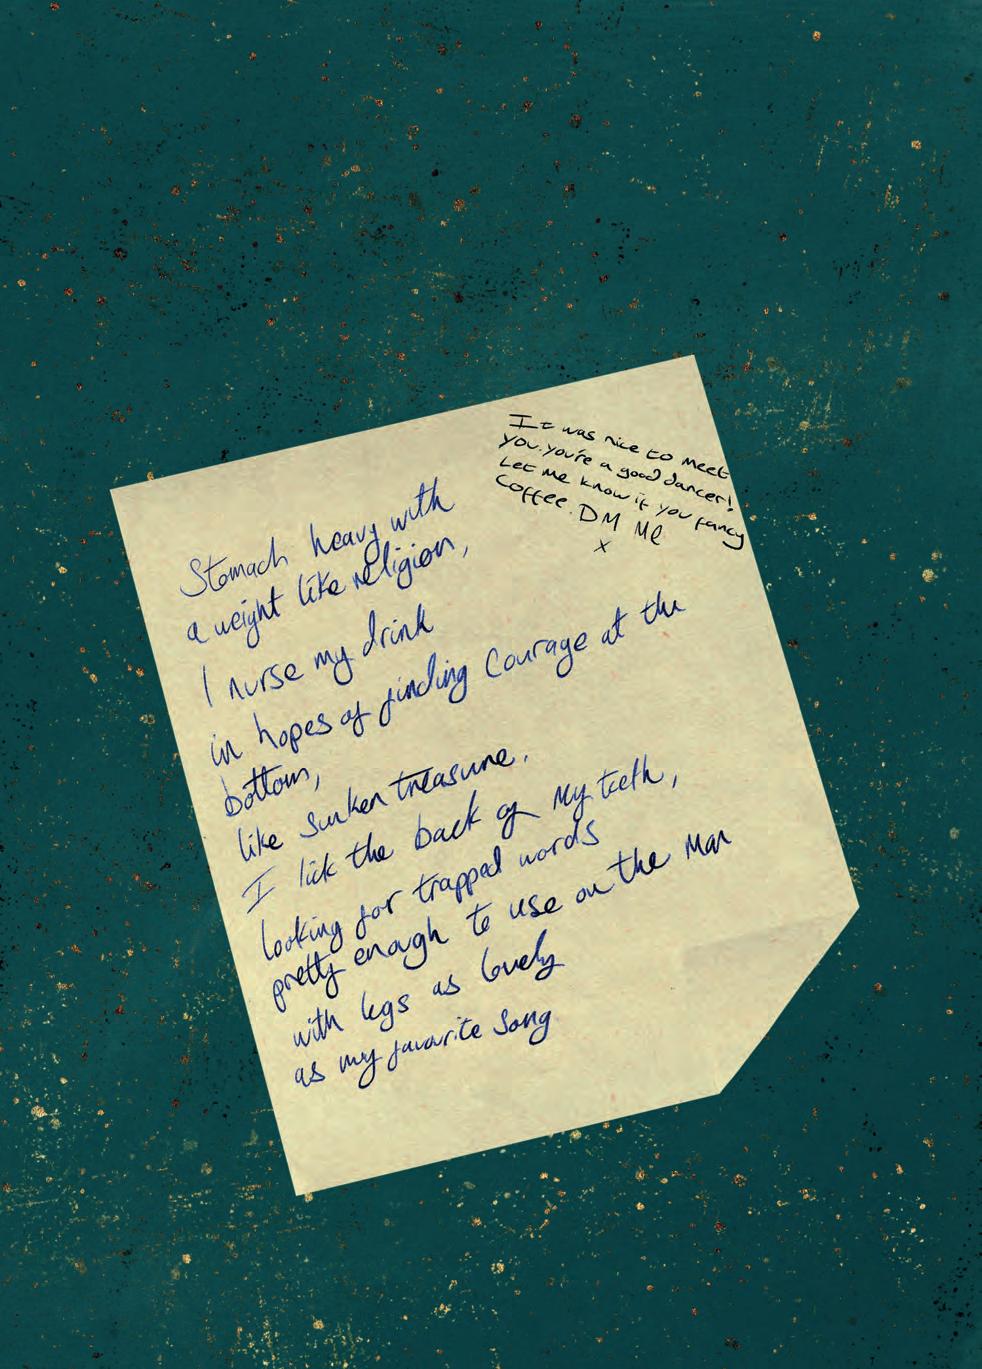 It was nice to meet
you. you're a good dancer!
Let me know if you fancy
Coffee. DM Me
x
Stomach heavy with
a weight like religion,
I nurse my drink
in hopes of finding courage at the
bottom,
like sunken treasure.
I lick the back of my teeth,
looking for trapped words
pretty enough to use on the man
with legs as lovely
as my favourite song